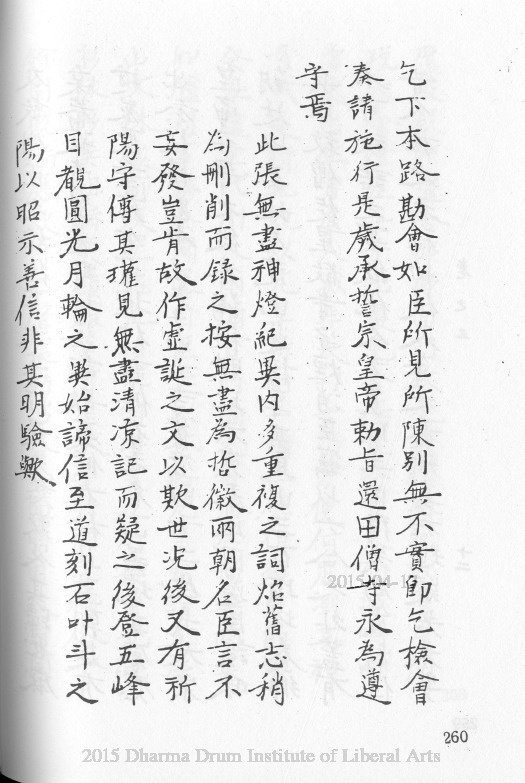 乞下本路勘會如臣所見所陳別無不實即乞檢會
奏諸施行是歲承哲宗皇帝勅旨還田僧寺永為遵
守焉
此張無盡神燈紀異內多重複之詞炤舊志稍
為刪削而録之按無盡為哲徽兩朝名臣言不
妄發豈肯故作虛誕之文以欺世况後又有祈
陽守傅其瓘見無盡清凉記而疑之後登五峰
目覩圓光月輪之異始諦信至道刻石叶斗之
陽以昭示善信非其明驗歟
2015-04-1
260
2015 Dharma Drum Institute of Liberal Arts